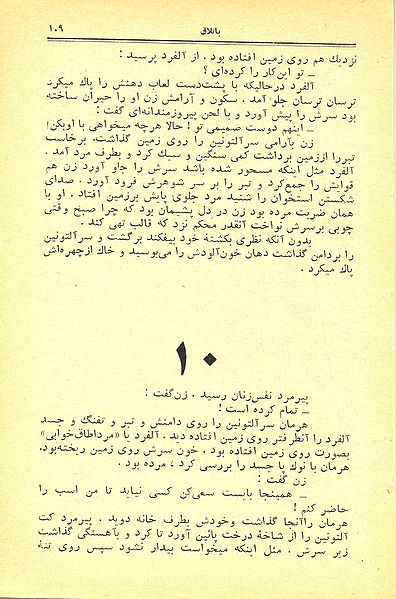 باتلاق
۱۰۹
نزدیك هم روی زمین افتاده بود . از آلفرد پرسید :
ـ تو این‌کار را کرده‌ای ؟
آلفرد درحالیکه با پشت‌دست لعاب دهنش را پاك میکرد
ترسان ترسان جلو آمد . سکون و آرامش زن او را حیران ساخته
بود سرش را پیش آورد و با لحن پیروزمندانه‌ای گفت :
ـ اینهم دوست صمیمی تو ! حالا هرچه میخواهی با اوبکن!
زن بآرامی سرآلتونین را روی زمین گذاشت . برخاست
تبررا اززمین برداشت کمی سنگین و سبك کرد و بطرف مرد آمد .
آلفرد مثل اینکه مسحور شده باشد سرش را جلو آورد زن هم
قوایش را جمع‌کرد و تبر را بر سر شوهرش فرود آورد . صدای
شکستن استخوان را شنید مرد جلوی پایش برزمین افتاد . او با
همان ضربت مرده بود زن در دل پشیمان بود که چرا صبح وقتی
چوبی برسرش نواخت آنقدر محکم نزد که قالب تهی کند .
بدون آنکه نظری بکشتهٔ خود بیفکند برگشت و سرآلتونین
را بردامن گذاشت دهان خون‌آلودش را می‌بوسید و خاك ازچهره‌اش
پاك میکرد .
۱۰
پیرمرد نفس‌زنان رسید . زن‌گفت :
ـ تمام کرده است !
هرمان سرآلتونین را روی دامنش و تبر و تفنگ و جسد
آلفرد را آنطرفتر روی زمین افتاده دید . آلفرد یا «مرداطاق‌خوابی»
بصورت روی زمین افتاده بود . خون سرش روی زمین ریخته‌بود.
هرمان با نوك پا جسد را بررسی کرد ، مرده بود .
زن گفت :
ـ همینجا بایست سعی‌کن کسی نیاید تا من اسب را
حاضر کنم !
هرمان راآنجا گذاشت وخودش بطرف خانه دوید . پیرمرد کت
آلتونین را از شاخهٔ درخت پائین آورد تا کرد و بآهستگی گذاشت
زیر سرش . مثل اینکه میخواست بیدار نشود سپس روی تنهٔ